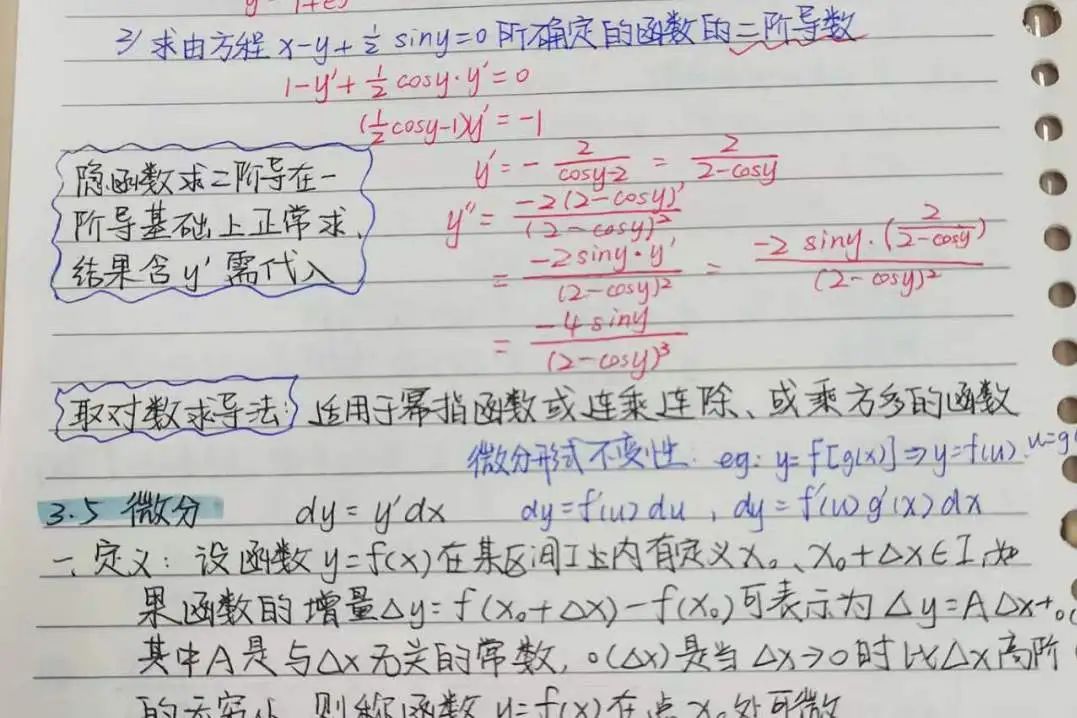 3) 求由方程 x-y+½ siny=0 所确定的函数的二阶导数
1-y'+½ cosy·y'=0
(½cosy-1)y'=-1
隐函数求二阶导在一
阶导基础上正常求,
结果含y'需代入
y'=- 2/(cosy-2) = 2/(2-cosy)
y''= -2(2-cosy)'/(2-cosy)²
= -2siny·y'/(2-cosy)² = -2 siny·(2/(2-cosy))/(2-cosy)²
= -4siny/(2-cosy)³
取对数求导法: 适用于幂指函数或连乘连除、或乘方多的函数
微分形式不变性: eg: y=f[g(x)]⇒y=f(u).u=g
3.5 微分 dy=y'dx dy=f'(u)du, dy=f'(u)g'(x)dx
一、定义: 设函数y=f(x)在某区间I上内有定义x₀、x₀+Δx∈I,如
果函数的增量Δy=f(x₀+Δx)-f(x₀)可表示为Δy=AΔx+o(
其中A是与Δx无关的常数,o(Δx)是当Δx→0时比Δx高阶
的无穷小,则称函数y=f(x)在点x₀处可微